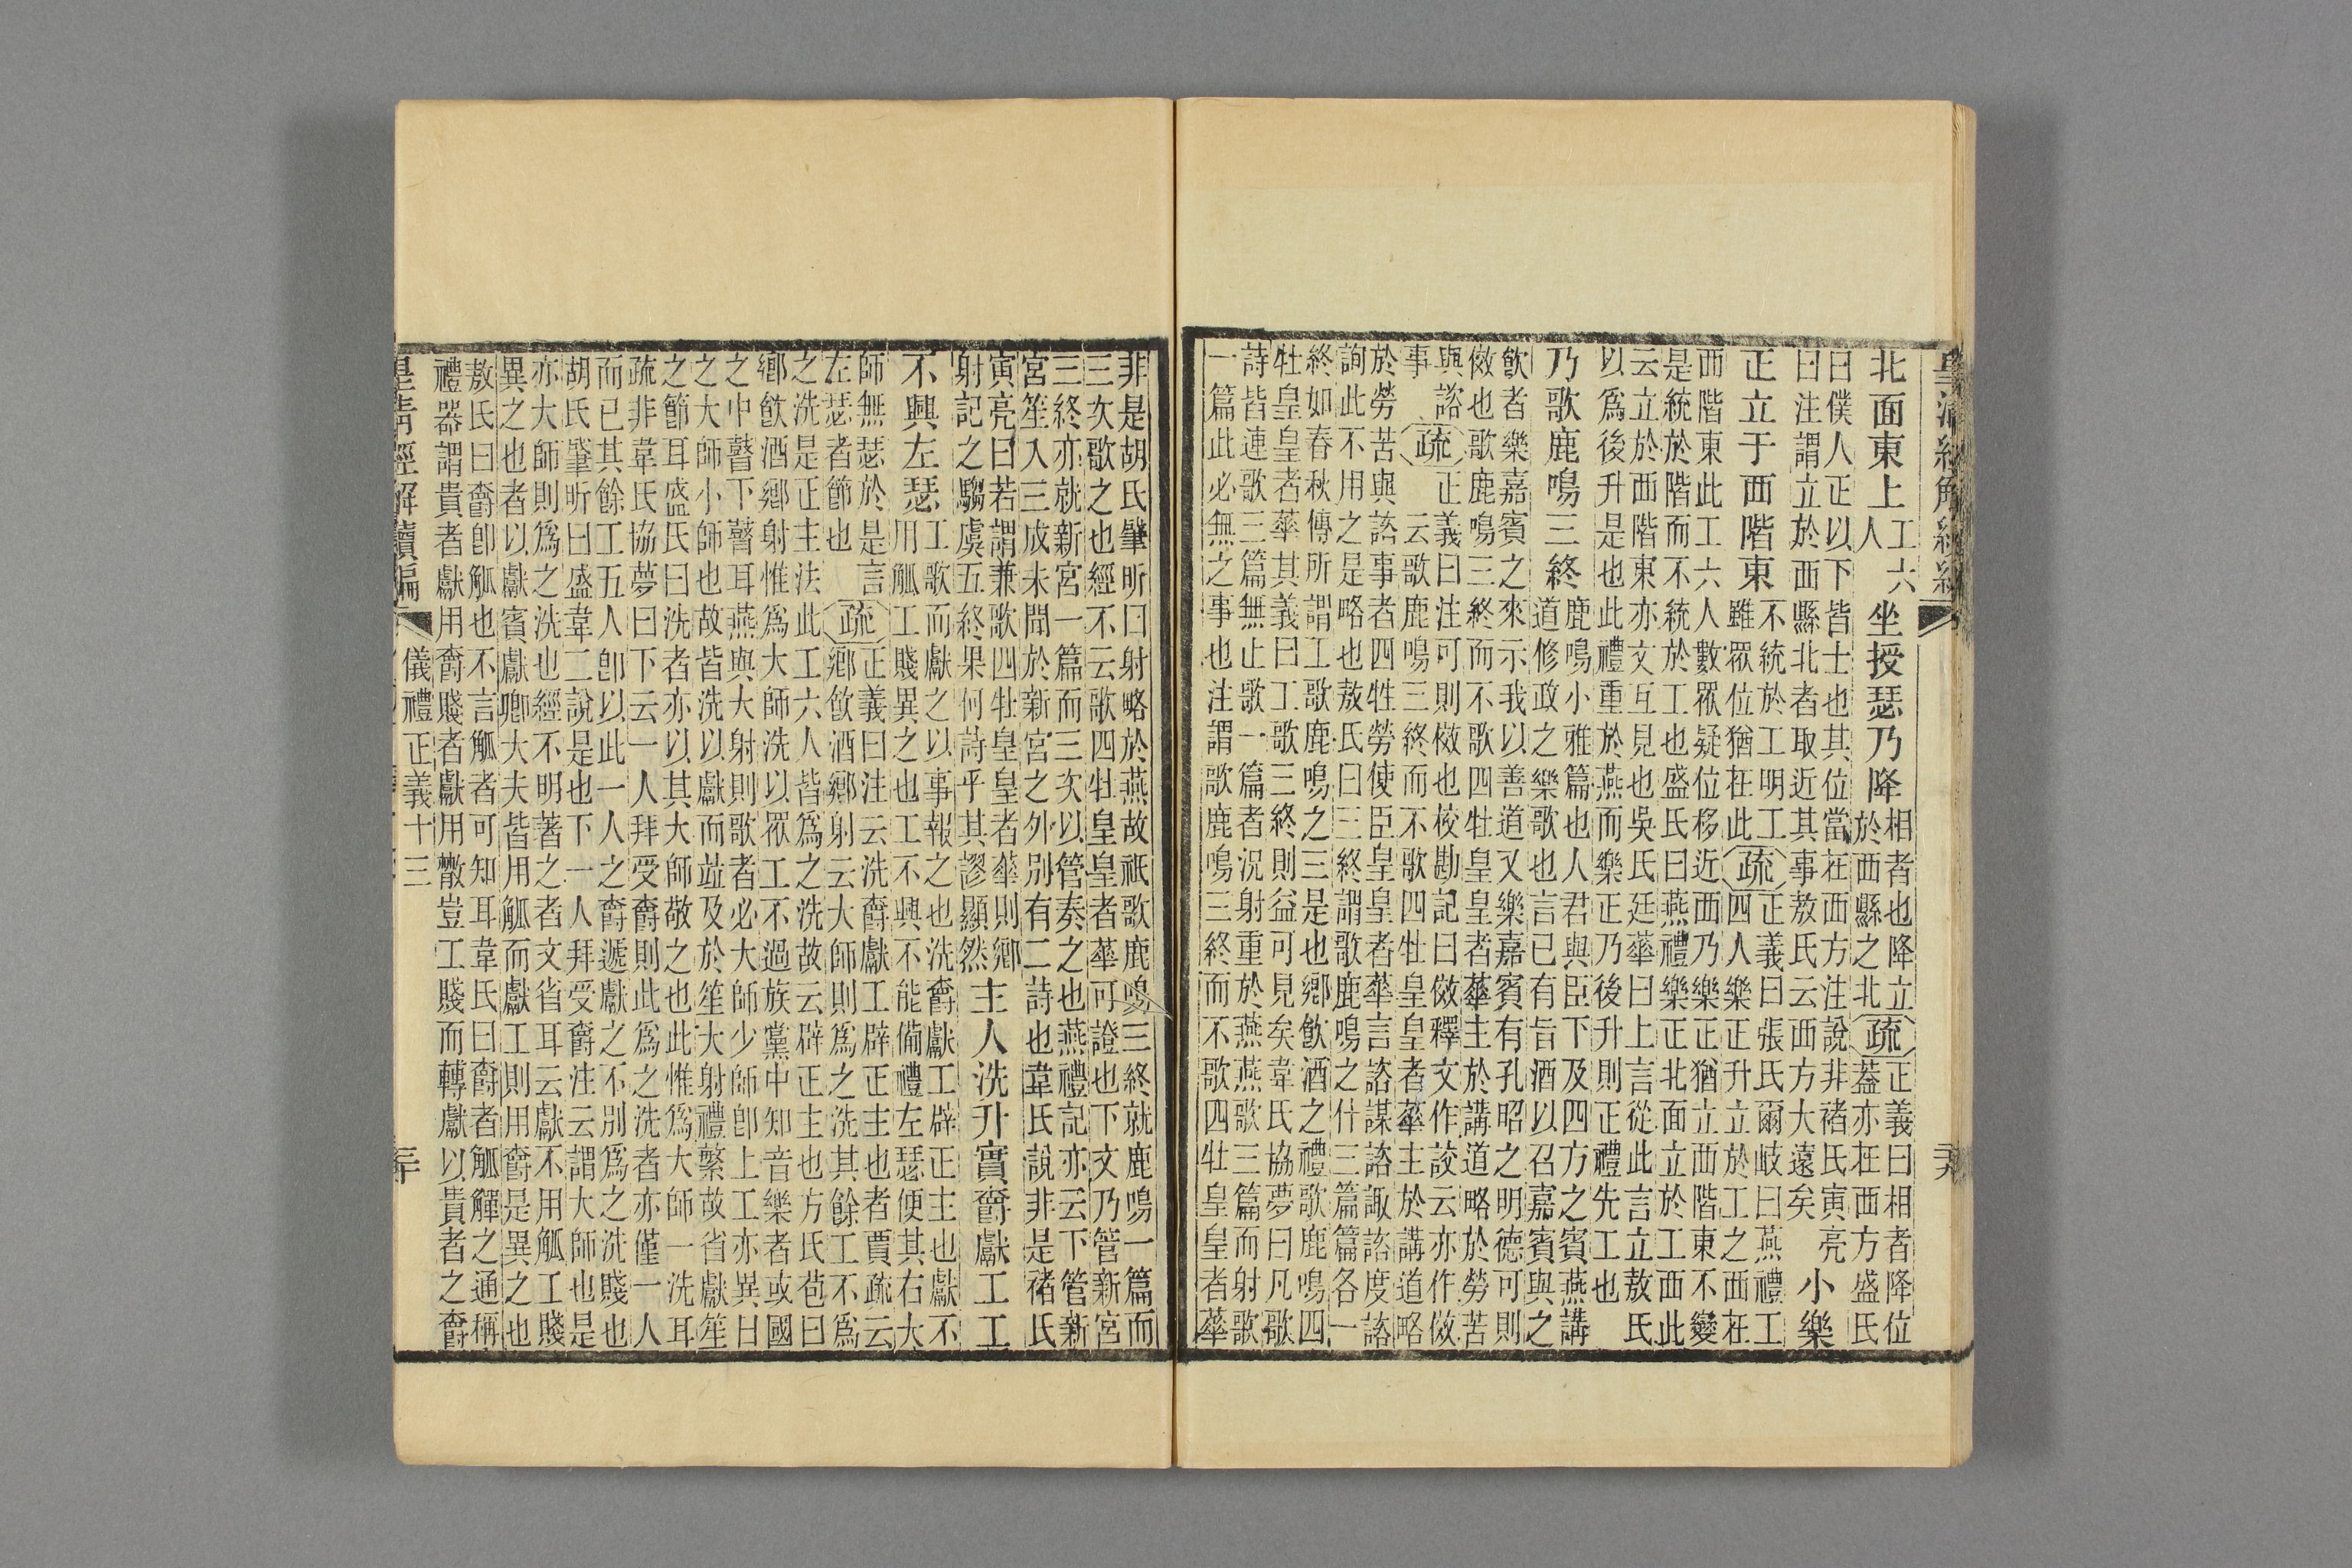 北面東上工六人坐授瑟乃降相者也降立於西縣之北疏正義曰相者降位蓋亦在西方盛氏
曰僕人正以下皆士也其位當在西方注說非褚氏寅亮
曰注謂立於西縣北者取近其事敖氏云西方大遠矣小樂
正立于西階東不統於工明工雖眾位猶在此疏正義曰張氏爾岐曰燕禮工四人樂正升立於工之西在
西階東此工六人數眾疑位移近西乃樂正猶立西階東不變
是統於階而不統於工也盛氏曰燕禮樂正北面立於工西此
云立於西階東亦文互見也吳氏廷華曰上言從此言立敖氏
以爲後升是也此禮重於燕而樂正乃後升則正禮先工也
乃歌鹿鳴三終鹿鳴小雅篇也人君與臣下及四方之賓燕講道修政之樂歌也言已有旨酒以召嘉賓與之
飲者樂嘉賓之來示我以善道又樂嘉賓有孔昭之明德可則
傚也歌鹿鳴三終而不歌四牡皇皇者華主於講道略於勞苦
與諮事疏正義曰注可則傚也校勘記曰傚釋文作詨云亦作傚云歌鹿鳴三終而不歌四牡皇皇者華主於講道略
於勞苦與諮事者四牲勞使臣皇皇者華言諮謀諮諏諮度諮
詢此不用之是略也敖氏曰三終謂歌鹿鳴之什三篇篇各一
終如春秋傳所謂工歌鹿鳴之三是也鄉飲酒之禮歌鹿鳴四
牡皇皇者華其義曰工歌三終則益可見矣韋氏協夢曰凡歌
詩皆連歌三篇無止歌一篇者況射重於燕燕歌三篇而射歌
一篇此必無之事也注謂歌鹿鳴三終而不歌四牡皇皇者華
非是胡氏肇昕曰射略於燕故祇歌鹿鳴三終就鹿鳴一篇而
三次歌之也經不云歌四牡皇皇者華可證也下文乃管新宮
三終亦就新宮一篇而三次以管奏之也燕禮記亦云下管新
宮笙入三成未聞於新宮之外別有二詩也韋氏說非是褚氏
寅亮曰若謂兼歌四牡皇皇者華則鄉射記之騶虞五終果何詩乎其謬顯然主人洗升實爵獻工工
不興左瑟工歌而獻之以事報之也洗爵獻工辟正主也獻不用觚工賤異之也工不興不能備禮左瑟便其右大
師無瑟於是言左瑟者節也疏正義曰注云洗爵獻工辟正主也者賈疏云鄉飲酒鄉射云大師則爲之洗其餘工不爲
之洗是正主法此工六人皆爲之洗故云辟正主也方氏苞曰
鄉飲酒鄉射惟爲大師洗以眾工不過族黨中知音樂者或國
之中瞽下瞽耳燕與大射則歌者必大師少師卽上工亦異日
之大師小師也故皆洗以獻而竝及於笙大射禮繁故省獻笙
之節耳盛氏曰洗者亦以其大師敬之也此惟爲大師一洗耳
疏非韋氏協夢曰下云一人拜受爵則此爲之洗者亦僅一人
而已其餘工五人卽以此一人之爵遞獻之不別爲之洗賤也
胡氏肇昕曰盛韋二說是也下一人拜受爵注云謂大師也是
亦大師則爲之洗也經不明著之者文省耳云獻不用觚工賤
異之也者以獻賓獻卿大夫皆用觚而獻工則用爵是異之也
敖氏曰爵卽觚也不言觚者可知耳韋氏曰爵者觚觶之通稱
禮器謂貴者獻用爵賤者獻用散豈工賤而轉獻以貴者之爵
皇清經解續編
儀禮正義十三